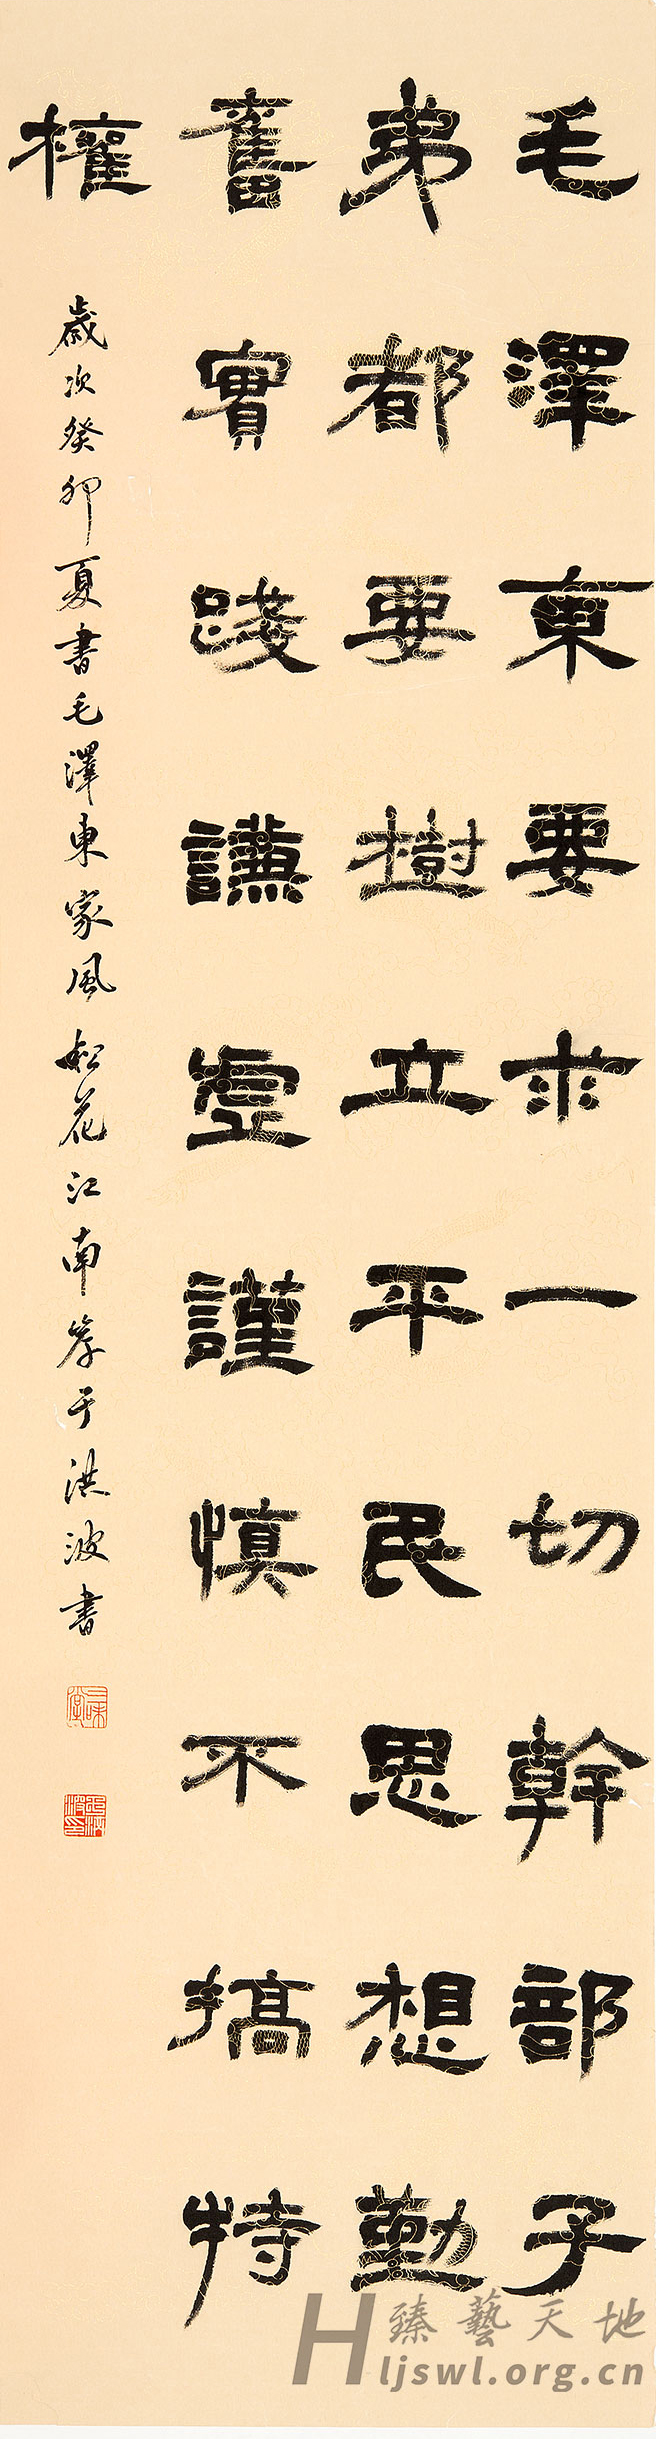 毛澤東要求一切幹部子
弟都要樹立平民思想勤
奮實踐謙虛謹慎不搞特
權
歲次癸卯夏書毛澤東家風松花江南岸于洪波書
三味堂
臻藝天地
Hljswl.org.cn